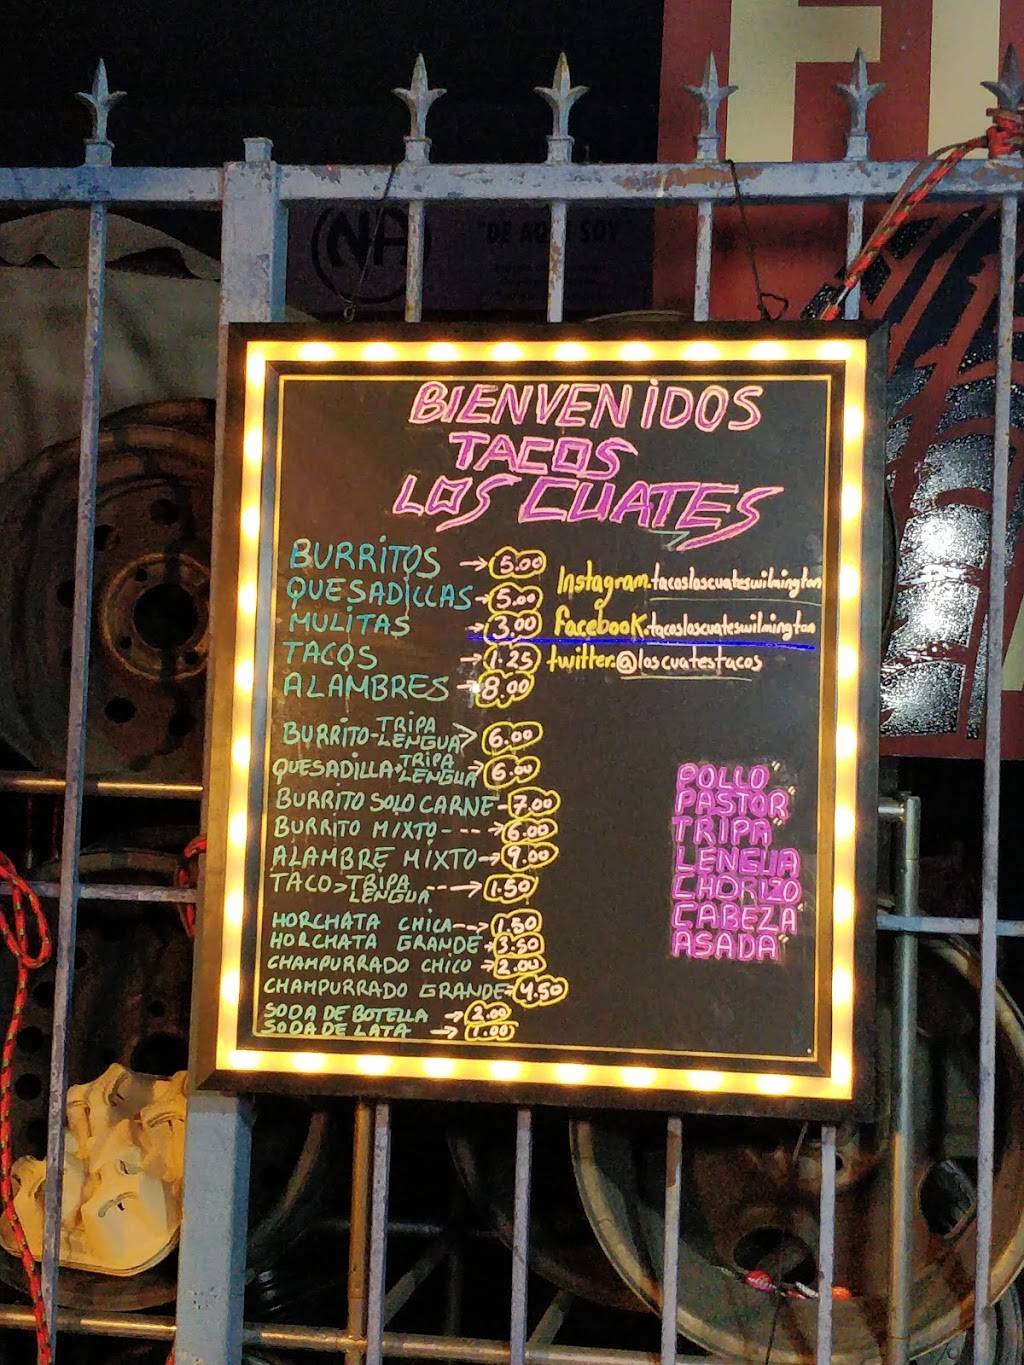 NA
"DE AQUI SOY"
BIENVENIDOS
TACOS
LOS CUATES
BURRITOS → 5.00
QUESADILLAS → 5.00
MULITAS 3.00
TACOS → 1.25
ALAMBRES → 8.00
Instagram.tacosloscuateswilmington
facebook.tacosloscuateswilmington
twitter:@loscuatestacos
BURRITO-TRIPA LENGUA> 6.00
QUESADILLA-TRIPA LENGUA 6.00
BURRITO SOLO CARNE - 7.00
BURRITO MIXTO - --→ 6.00
ALAMBRE MIXTO → 9.00
TACO>TRIPA LENGUA --→ 1.50
HORCHATA CHICA--→ 1.50
HORCHATA GRANDE → 3.50
CHAMPURRADO CHICO → 2.00
CHAMPURRADO GRANDE → 4.50
SODA DE BOTELLA → 2.00
SODA DE LATA → 1.00
POLLO"
PASTOR"
TRIPA"
LENGUA
CHORIZO
CABEZA"
ASADA"